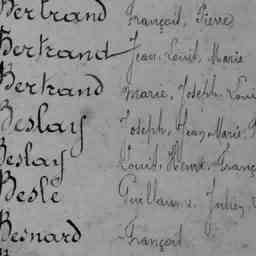 Bertrand François, Pierre
Bertrand Jean, Louis, Marie
Bertrand Marie, Joseph, Loui
Beslay Joseph, Jean Marie, P
Beslay Louis, Henri, Franç
Beslé Guillaume, Julien,
Besnard François